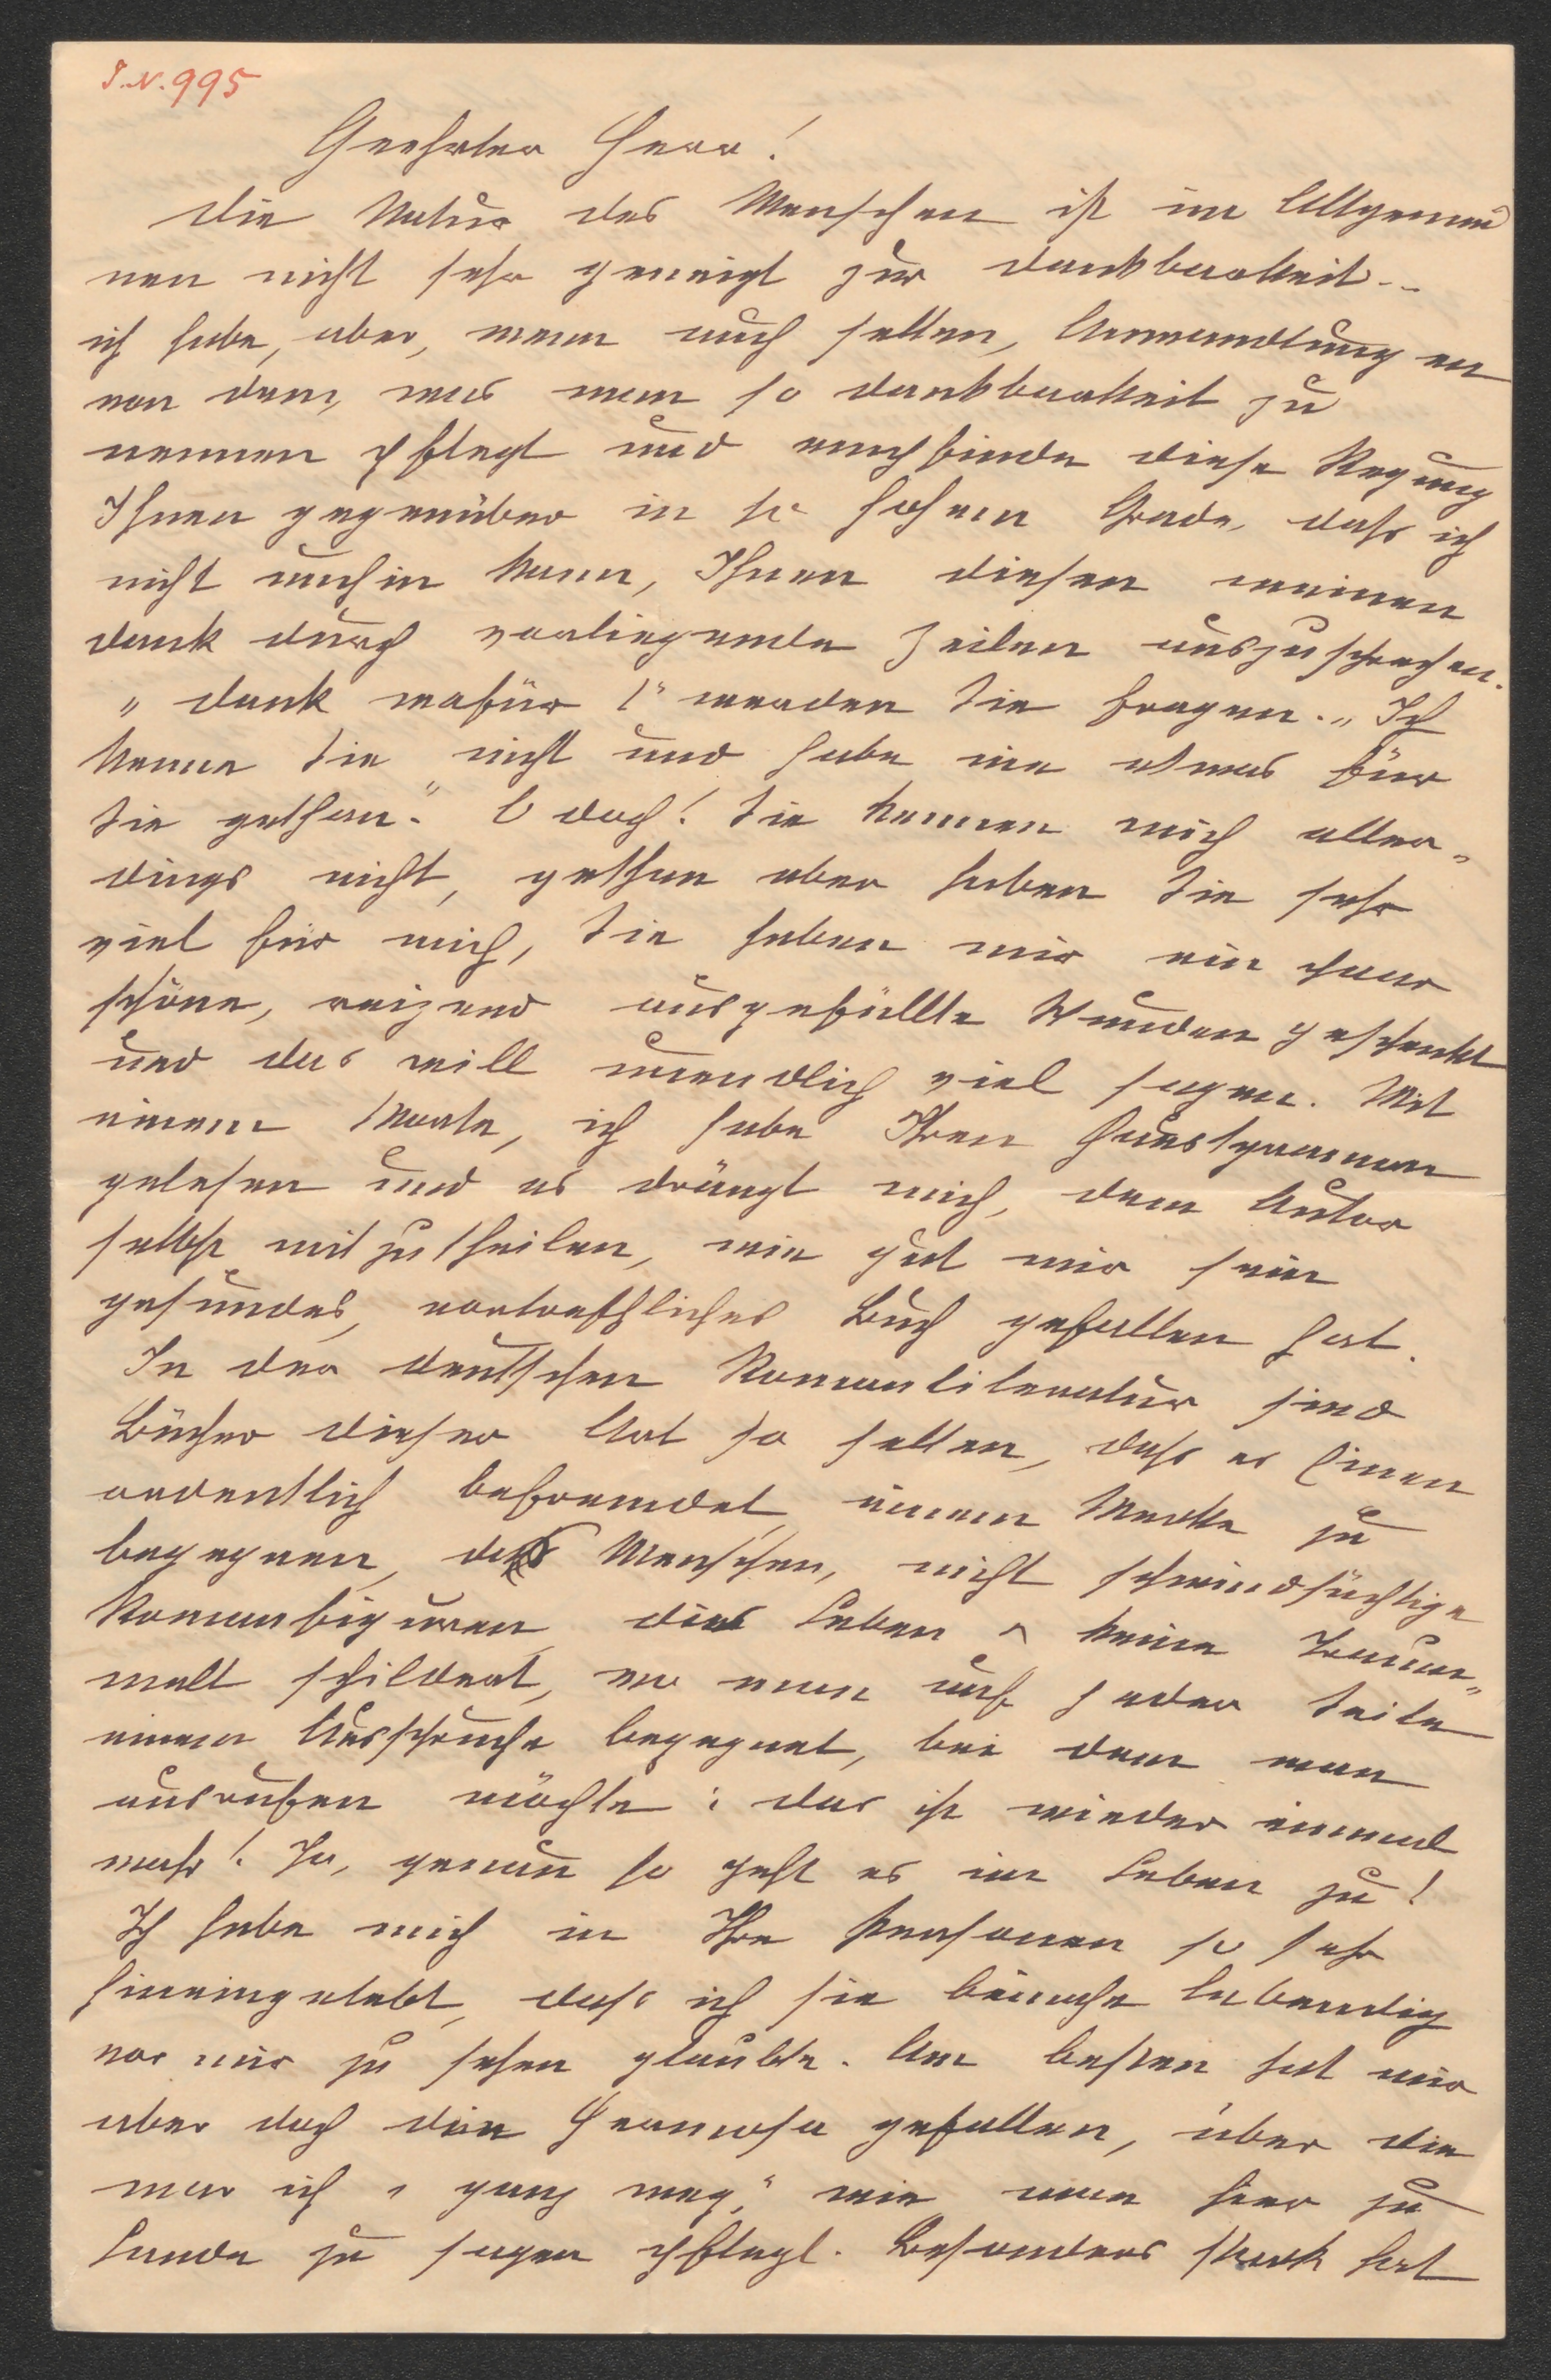 J.N. 995
Geehrter Herr!
Die Natur des Menschen ist im Allgemei
nen nicht sehr geneigt zur Dankbarkeit..
ich habe, aber, wenn auch selten, Anwandlungen
von dem, was man so Dankbarkeit zu
nennen pflegt und empfinde diese Regung
Ihnen gegenüber in so hohem Grade, dass ich
nicht umhin kann, Ihnen diesen meinen
Dank durch vorliegende Zeilen auszusprechen.
„Dank wofür!" werden Sie fragen. „Ich
kenne Sie nicht und habe nie etwas für
Sie gethan." O doch! Sie kennen mich aller-
dings nicht, gethan aber haben Sie sehr
viel für mich, Sie haben mir ein paar
schöne, reizend ausgefüllte Stunden geschenkt
und das will unendlich viel sagen. Mit
einem Worte, ich habe Ihren
gelesen und es drängt mich, dem Autor
selbst mitzutheilen, wie gut mir sein
gesundes, vortreffliches Buch gefallen hat.
In der deutschen Romanliteratur sind
Bücher dieser Art so selten, dass es Einen
ordentlich befremdet, einem Werke zu
begegnen, das Menschen, nicht schwindsüchtige
Romanfiguren, das Leben, keine Traum-
welt schildert, wo man auf jeder Seite
einem Ausspruche begegnet, bei dem man
ausrufen möchte: das ist wieder einmal
wahr! Ja, genau so geht es im Leben zu!
Ich habe mich in Ihre Personen so sehr
hineingelebt, dass ich sie beinahe lebendig
vor mir zu sehen glaubte. Am besten hat mir
aber doch die gefallen, über die
war ich „ganz weg," wie man hier zu
Lande zu sagen pflegt. Besonders stark hat